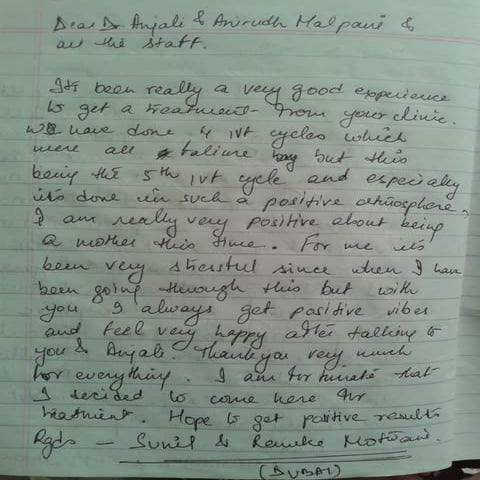 Dear Dr Anjali & Anirudh Malpani &
all the staff.
It's been really a very good experience
to get a treatment from your clinic.
We have done 4 IVF cycles which
were all failure but this
being the 5th IVF cycle and especially
it's done in such a positive atmosphere,
I am really very positive about being
a mother this time. For me it's
been very stressful since when I have
been going through this but with
you I always get positive vibes
and feel very happy after talking to
you & Anjali. Thankyou very much
for everything. I am fortunate that
I decided to come here for
treatment. Hope to get positive results
Rgds — Sunil & Motwani.
(DUBAI)